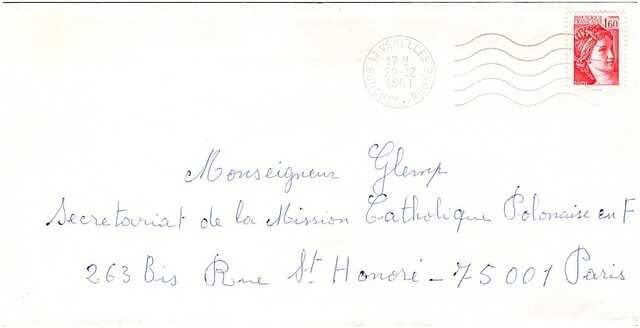 13 VENELLES
17 H
29-12
1981
BOUCHES DU RHONE
REPUBLIQUE
FRANÇAISE
1,60
Monseigneur Glemp
Secretariat de la Mission Catholique Polonaise en F
263 Bis Rue St. Honoré - 75001 Paris